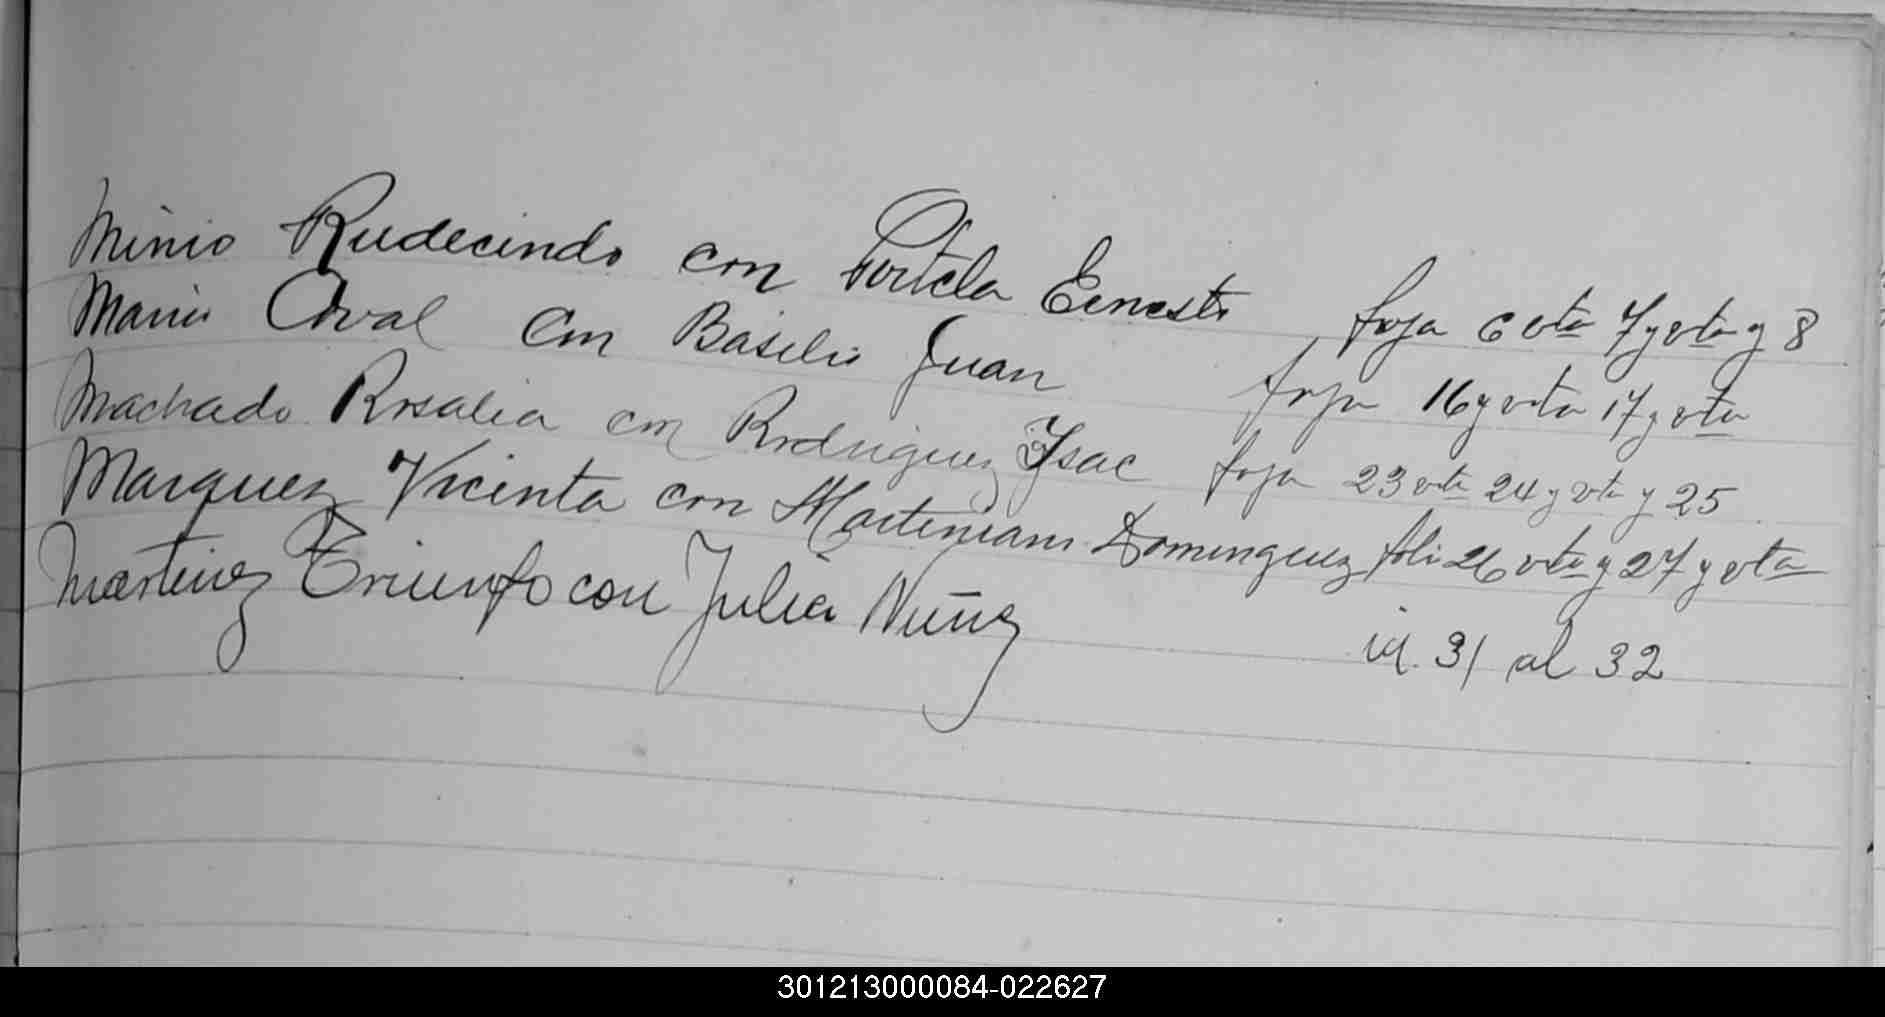 Minio Rudecindo con Portela Ernesto foja 6 vta 7 y vta y 8
Mario Oval con Basilio Juan foja 16 y vta 17 y vta
Machado Rosalia con Rodriguez Ysac foja 23 vta 24 y vta y 25
Marquez Vicenta con Martiniano Dominguez folio 26 vta y 27 y vta
Martinez Triunfo con Julia Nuñez id. 31 al 32
301213000084-022627